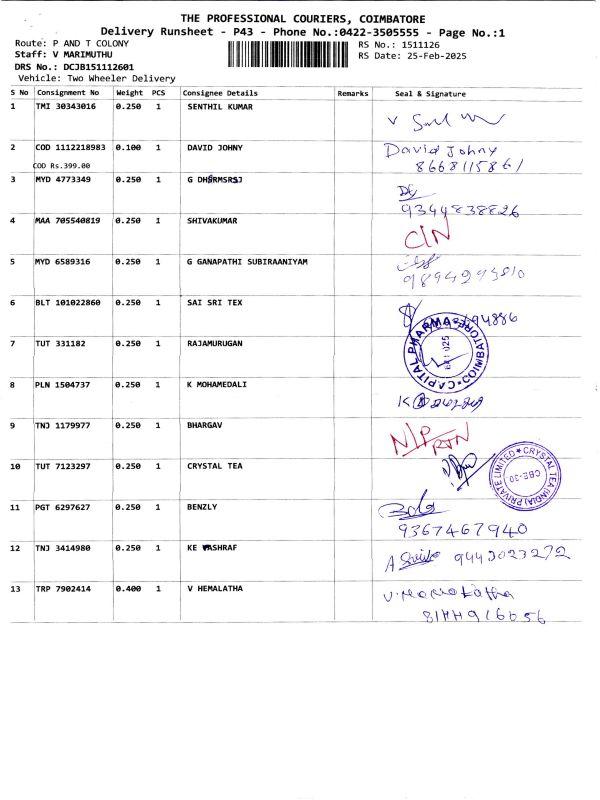 THE PROFESSIONAL COURIERS, COIMBATORE
Delivery Runsheet - P43 - Phone No.:0422-3505555 - Page No.:1
Route: P AND T COLONY
Staff: V MARIMUTHU
DRS No.: DCJB151112601
Vehicle: Two Wheeler Delivery
RS No.: 1511126
RS Date: 25-Feb-2025
S No Consignment No Weight PCS Consignee Details Remarks Seal & Signature
1 TMI 30343016 0.250 1 SENTHIL KUMAR
2 COD 1112218983 0.100 1 DAVID JOHNY David Johny
COD Rs.399.00 8668115861
3 MYD 4773349 0.250 1 G DHARMSRSJ
9344838826
4 MAA 705540819 0.250 1 SHIVAKUMAR C/N
5 MYD 6589316 0.250 1 G GANAPATHI SUBIRAANIYAM
6 BLT 101022860 0.250 1 SAI SRI TEX
7 TUT 331182 0.250 1 RAJAMURUGAN
CAPITAL PHARMA COIMBATORE
8 PLN 1504737 0.250 1 K MOHAMEDALI
9 TNJ 1179977 0.250 1 BHARGAV N/P RTN
10 TUT 7123297 0.250 1 CRYSTAL TEA
CRYSTAL TEA (INDIA) PRIVATE LIMITED CBE-30
11 PGT 6297627 0.250 1 BENZLY
9367467940
12 TNJ 3414980 0.250 1 KE ASHRAF 9443023272
13 TRP 7902414 0.400 1 V HEMALATHA V.Hemalatha